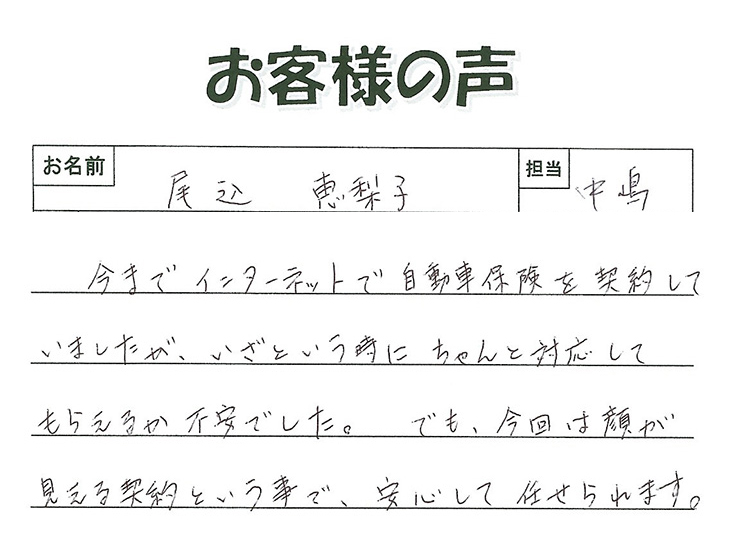 お客様の声
お名前 尾込 恵梨子 担当 中嶋
今までインターネットで自動車保険を契約して
いましたが、いざという時にちゃんと対応して
もらえるか不安でした。 でも、今回は顔が
見える契約という事で、安心して任せられます。